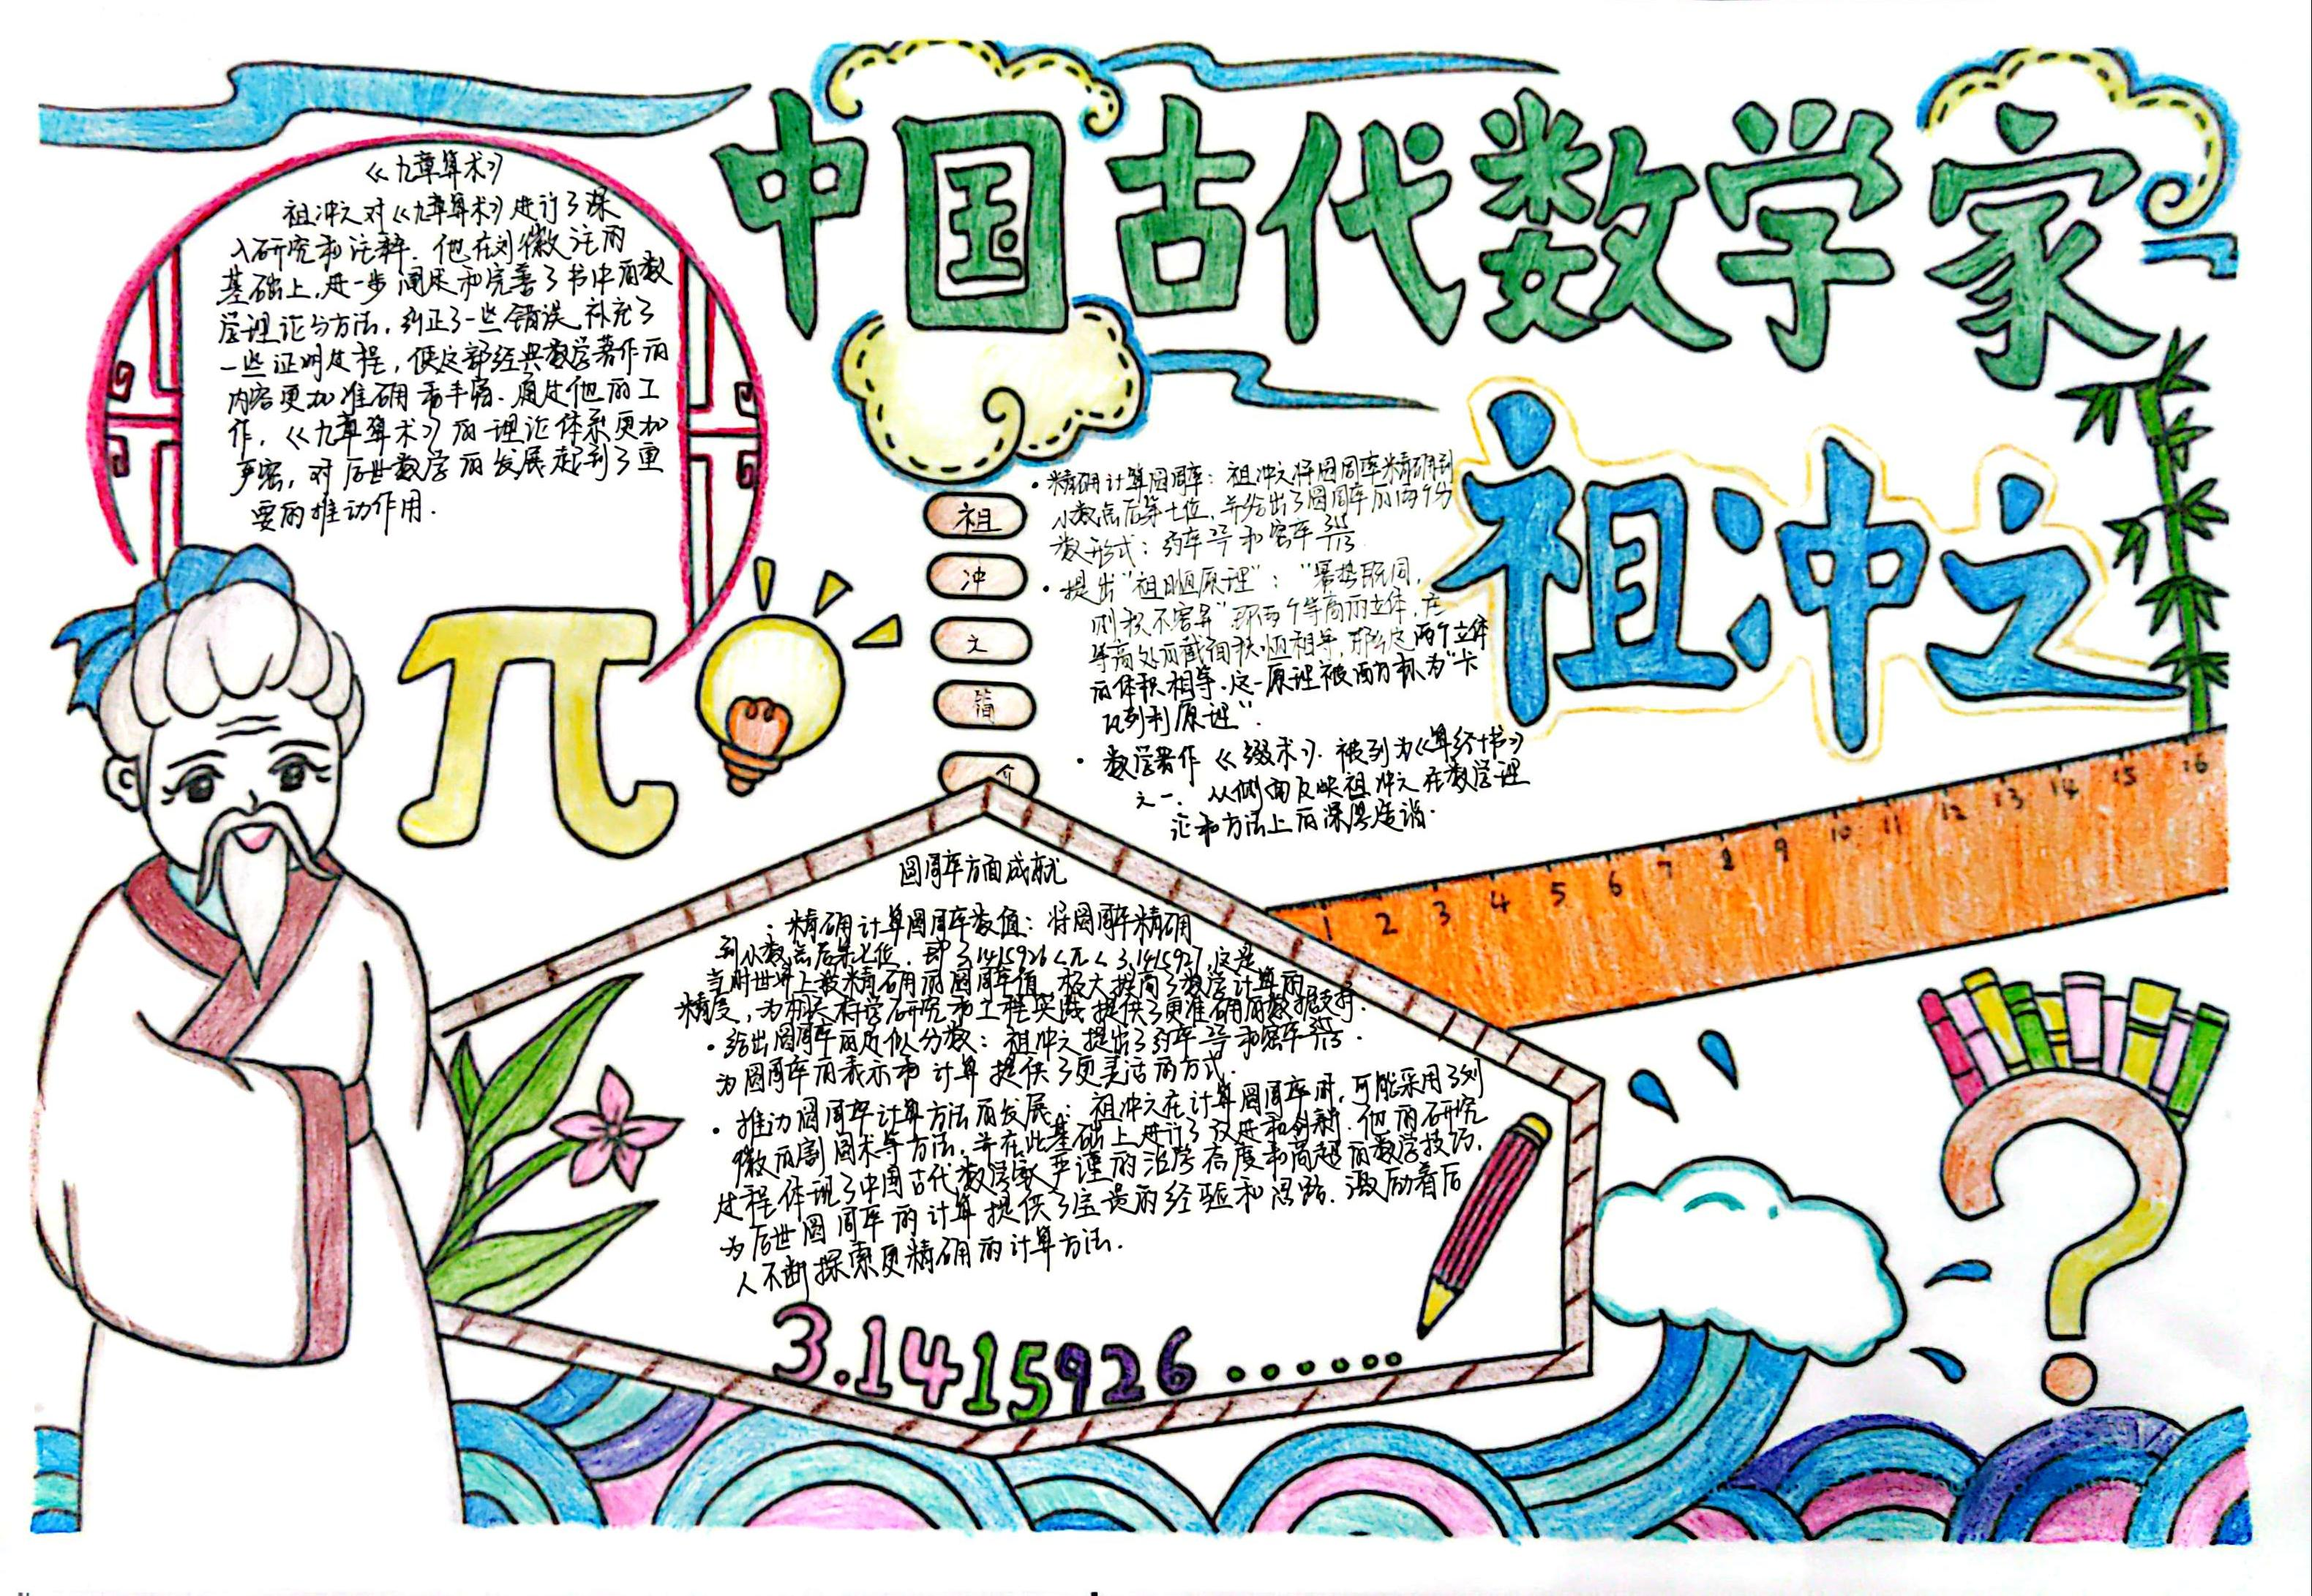 中国古代数学家
祖冲之
《九章算术》
祖冲之对《九章算术》进行了深
入研究和注释.他在刘徽注的
基础上,进一步阐述和完善了书中的数
学理论与方法,纠正了一些错误,补充了
一些证明过程,使这部经典数学著作的
内容更加准确和丰富.通过他的工
作,《九章算术》的理论体系更加
严密,对后世数学的发展起到了重
要的推动作用.
祖
冲
之
简
介
•精确计算圆周率:祖冲之将圆周率精确到
小数点后第七位,并给出了圆周率的两个分
数形式:约率22/7和密率355/113
•提出"祖暅原理":"幂势既同,
则积不容异"即两个等高的立体,在
等高处的截面积恒相等,那么这两个立体
的体积相等.这一原理被西方称为"卡
瓦列利原理".
•数学著作《缀术》.被列为《算经十书》
之一.从侧面反映祖冲之在数学理
论和方法上的深厚造诣.
1 2 3 4 5 6 7 8 9 10 11 12 13 14 15 16
π
圆周率方面成就
•精确计算圆周率数值:将圆周率精确
到小数点后第七位,即3.1415926<π<3.1415927,这是
当时世界上最精确的圆周率值,极大提高了数学计算的
精度,为相关科学研究和工程实践提供了更准确的数据支持.
•给出圆周率的近似分数:祖冲之提出了约率22/7和密率355/113.
为圆周率的表示和计算提供了更灵活的方式.
•推动圆周率计算方法的发展:祖冲之在计算圆周率时,可能采用了刘
徽的割圆术等方法,并在此基础上进行了改进和创新.他的研究
过程体现了中国古代数学家严谨的治学态度和高超的数学技巧,
为后世圆周率的计算提供了宝贵的经验和思路.激励着后
人不断探索更精确的计算方法.
3.1415926......
?